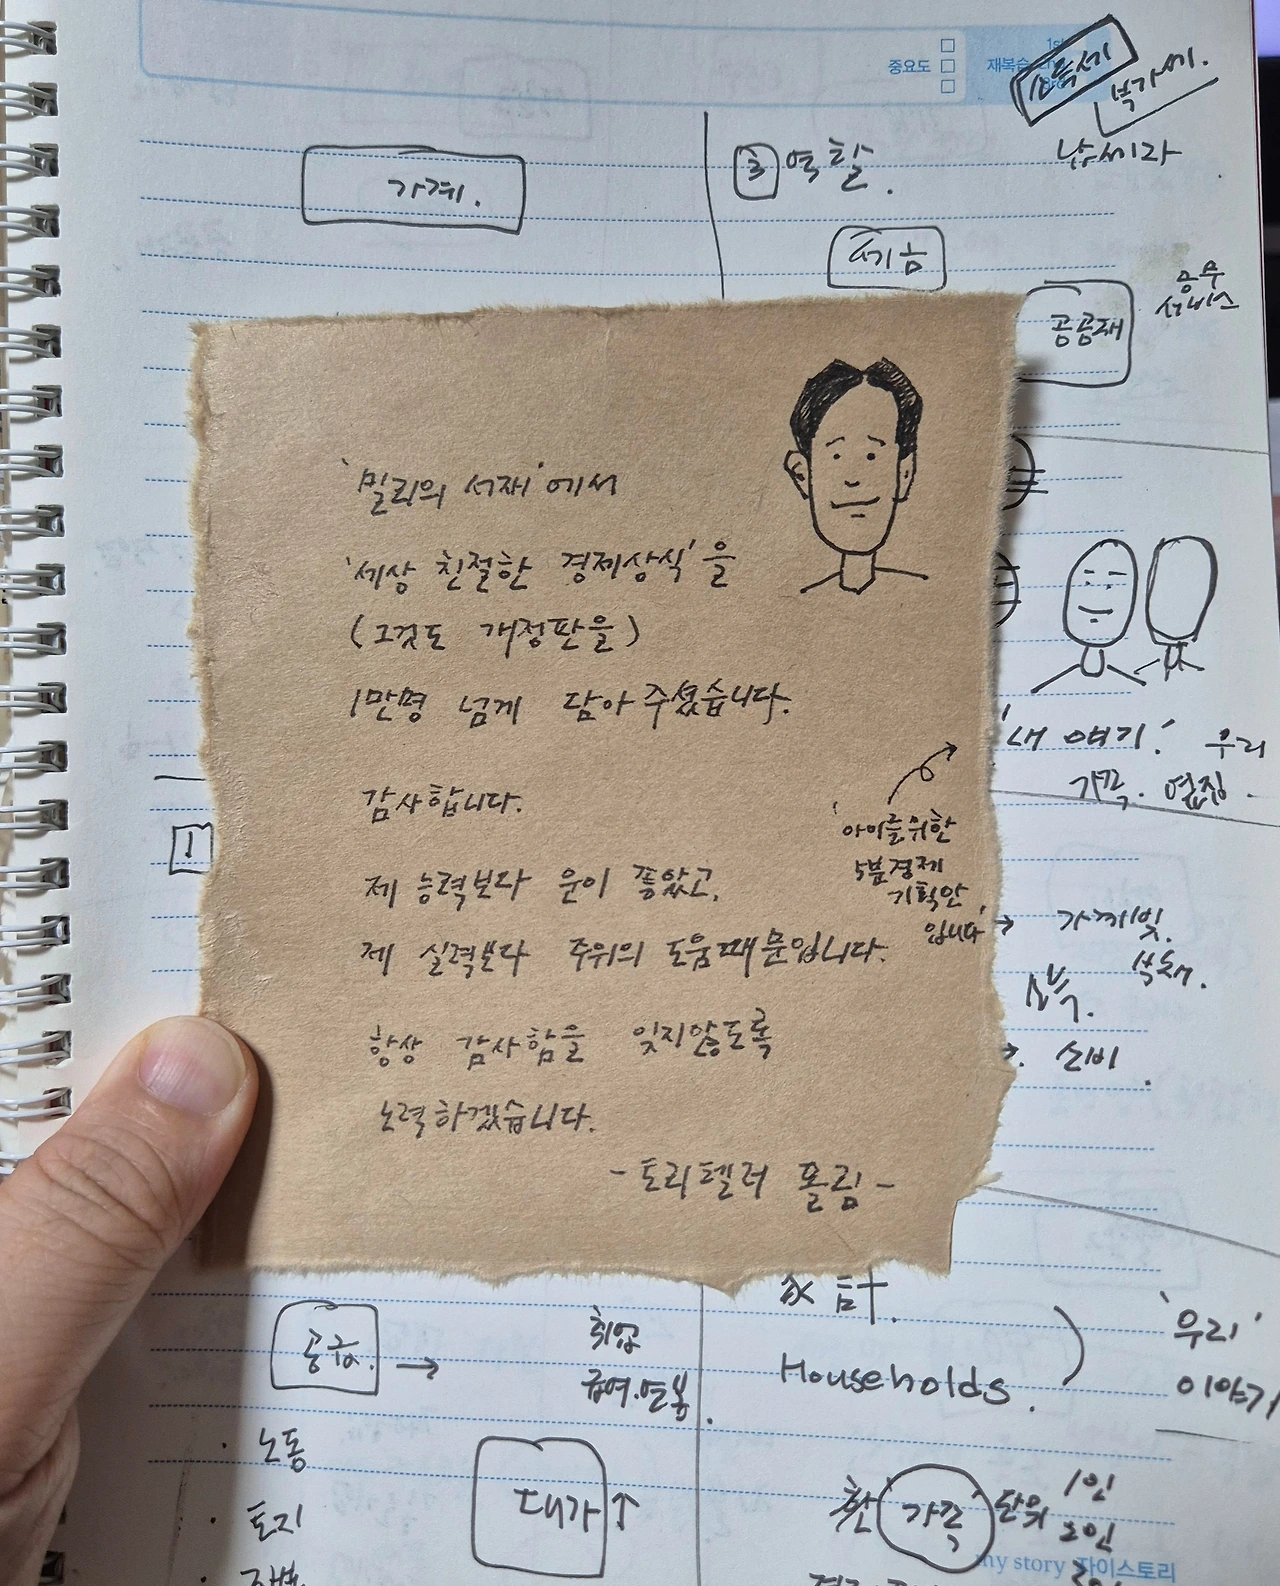 중요도
1st
재복습
소득세
부가세.
납세자
가계.
3 역할.
세금
공공재
공무
서비스
'밀리의 서재'에서
'세상 친절한 경제상식'을
(그것도 개정판을)
1만명 넘게 담아 주셨습니다.
감사합니다.
제 능력보다 운이 좋았고,
제 실력보다 주위의 도움때문입니다.
항상 감사함을 잊지않도록
노력하겠습니다.
- 토리텔러 올림 -
'아이를위한
5분경제
기획안
입니다'
'내 얘기.' 우리
가족. 옆집.
1
가계빚.
부채.
소득.
소비.
計.
Households.
'우리'
이야기
공급. →
취업
급여.연봉.
노동
토지
대가↑
한 '가족' 단위
1인
2인
my story 자이스토리